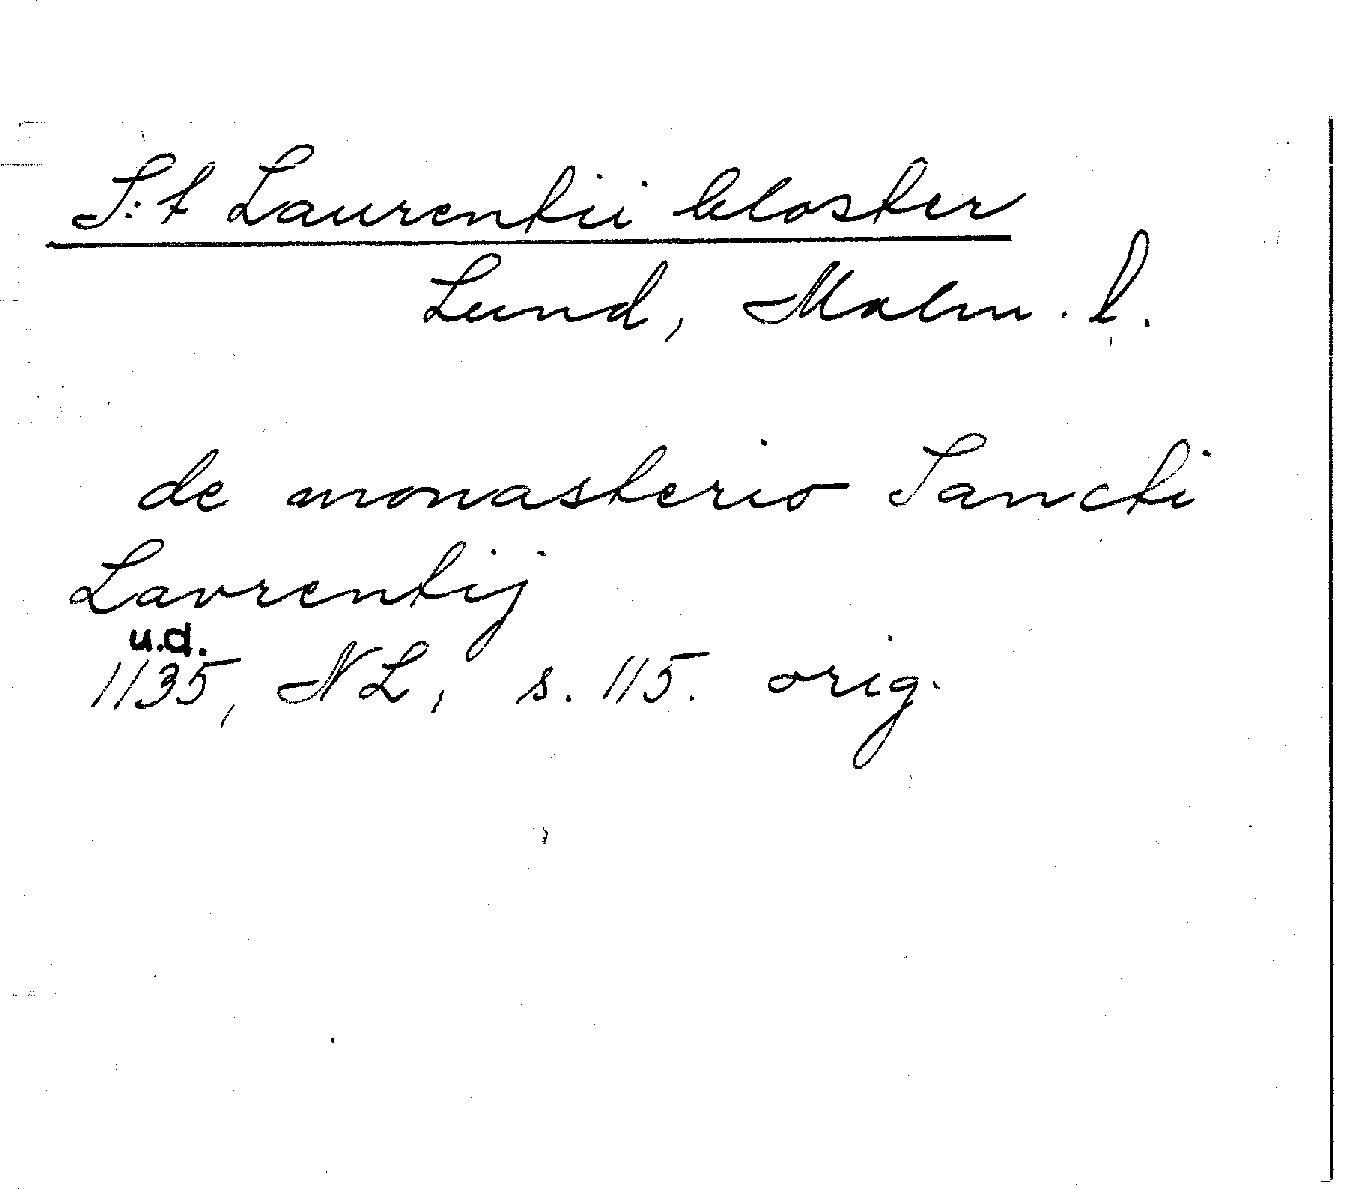 S:t Laurentii kloster
Lund, Malm. l.
de monasterio Sancti
Lavrentij
u.d.
1135, NL, s. 115. orig.